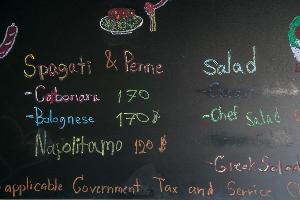 Spagati & Penne
- Cabonara 170
- Bolognese 170 ฿
Napolitamo 120 ฿
Salad
- Chef Salad 8
- Greek Salad
applicable Government Tax and Service